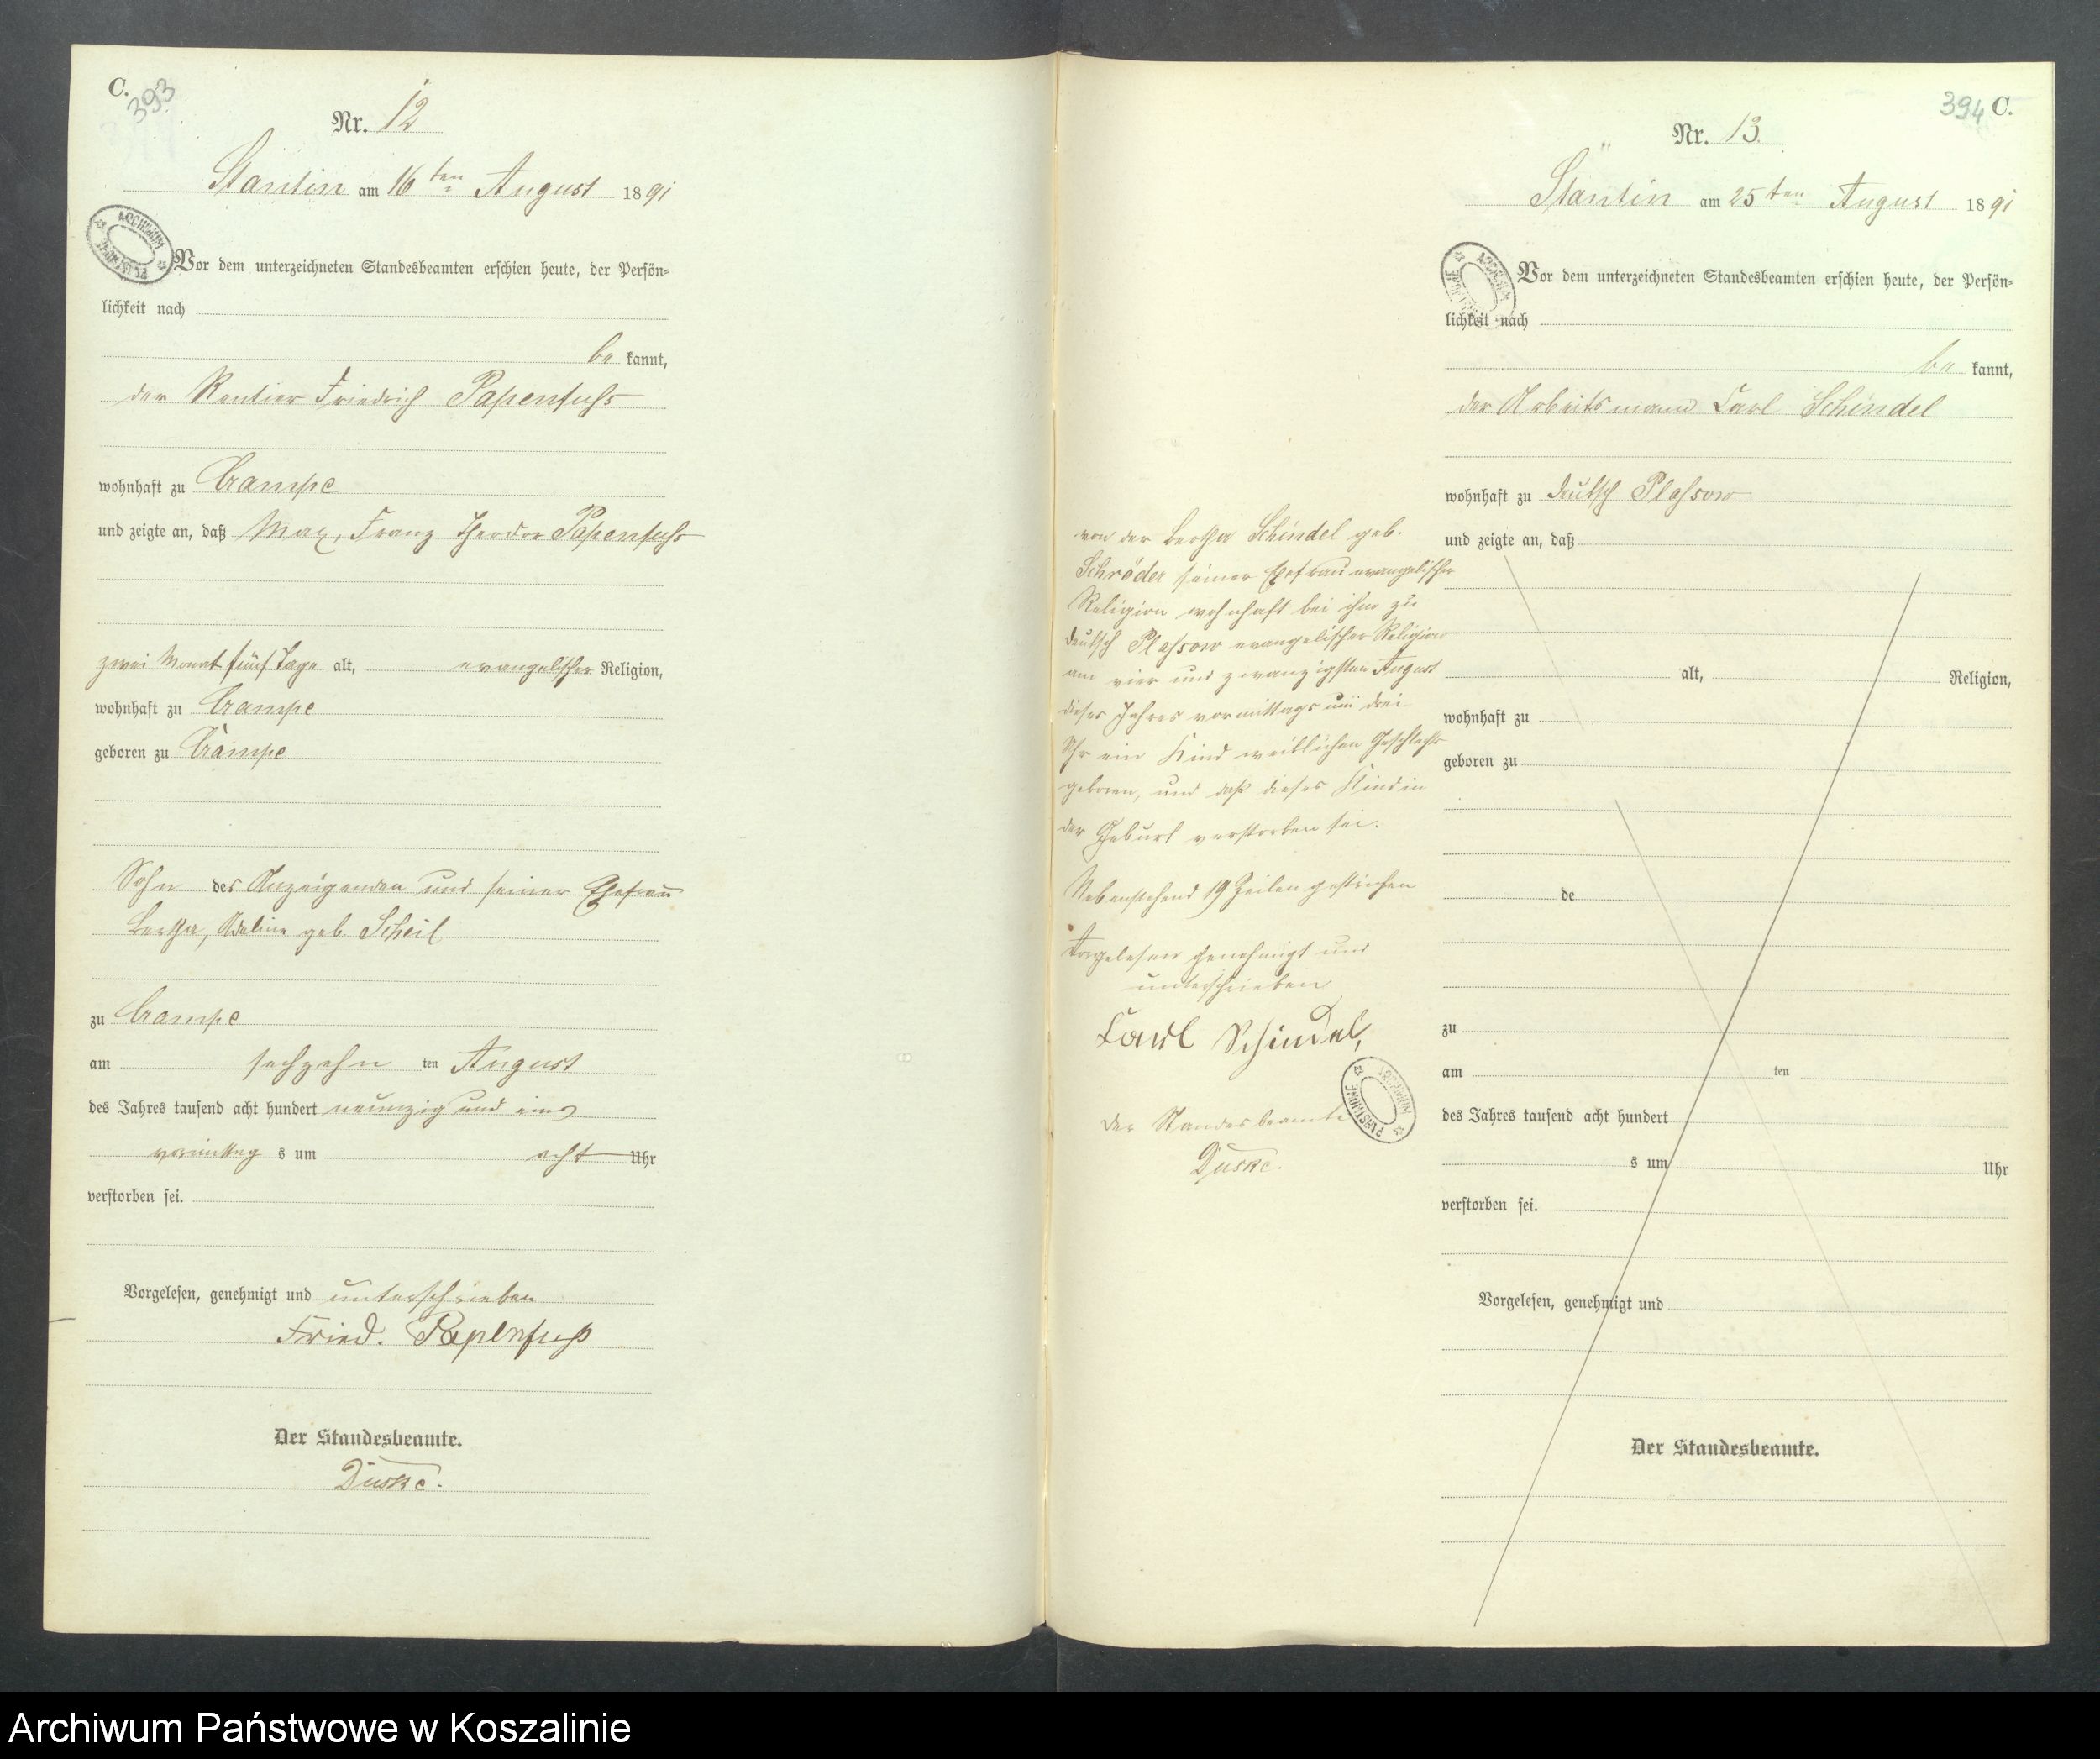 C.
393
Nr. 12
Stantin am 16ten August 1891
Vor dem unterzeichneten Standesbeamten erschien heute, der Persön-
lichkeit nach
be kannt,
der Rentier Friedrich Papenfuhs
wohnhaft zu Crampe
und zeigte an, daß Max, Franz Theodor Papenfuhs
zwei Monat fünf Tage alt, evangelischer Religion,
wohnhaft zu Crampe
geboren zu Crampe
Sohn des Anzeigenden und seiner Ehefrau
Bertha, Adeline geb. Scheil
zu Crampe
am sechzehn ten August
des Jahres tausend acht hundert neunzig und eins
vormittag s um acht Uhr
verstorben sei.
Vorgelesen, genehmigt und unterschrieben
Fried. Papenfuß
Der Standesbeamte.
Duske.
394 C.
Nr. 13.
Stäntin am 25ten August 1891
Vor dem unterzeichneten Standesbeamten erschien heute, der Persön-
lichkeit nach
be kannt,
der Arbeitsmann Carl Schindel
wohnhaft zu deutsch Plahsow
und zeigte an, daß
alt, Religion,
wohnhaft zu
geboren zu
de
zu
am ten
des Jahres tausend acht hundert
s um Uhr
verstorben sei.
Vorgelesen, genehmigt und
Der Standesbeamte.
von der Bertha Schindel geb.
Schröder seiner Ehefrau evangelischer
Religion wohnhaft bei ihm zu
deutsch Plahsow evangelischer Religion
am vier und zwanzigsten August
dieses Jahres vormittags um drei
Uhr ein Kind weiblichen Geschlechts
geboren, und daß dieses Kind in
der Geburt verstorben sei.
Nebenstehend 19 Zeilen gestrichen
Vorgelesen genehmigt und
unterschrieben
Carl Schindel,
Der Standesbeamte
Duske.
Archiwum Państwowe w Koszalinie